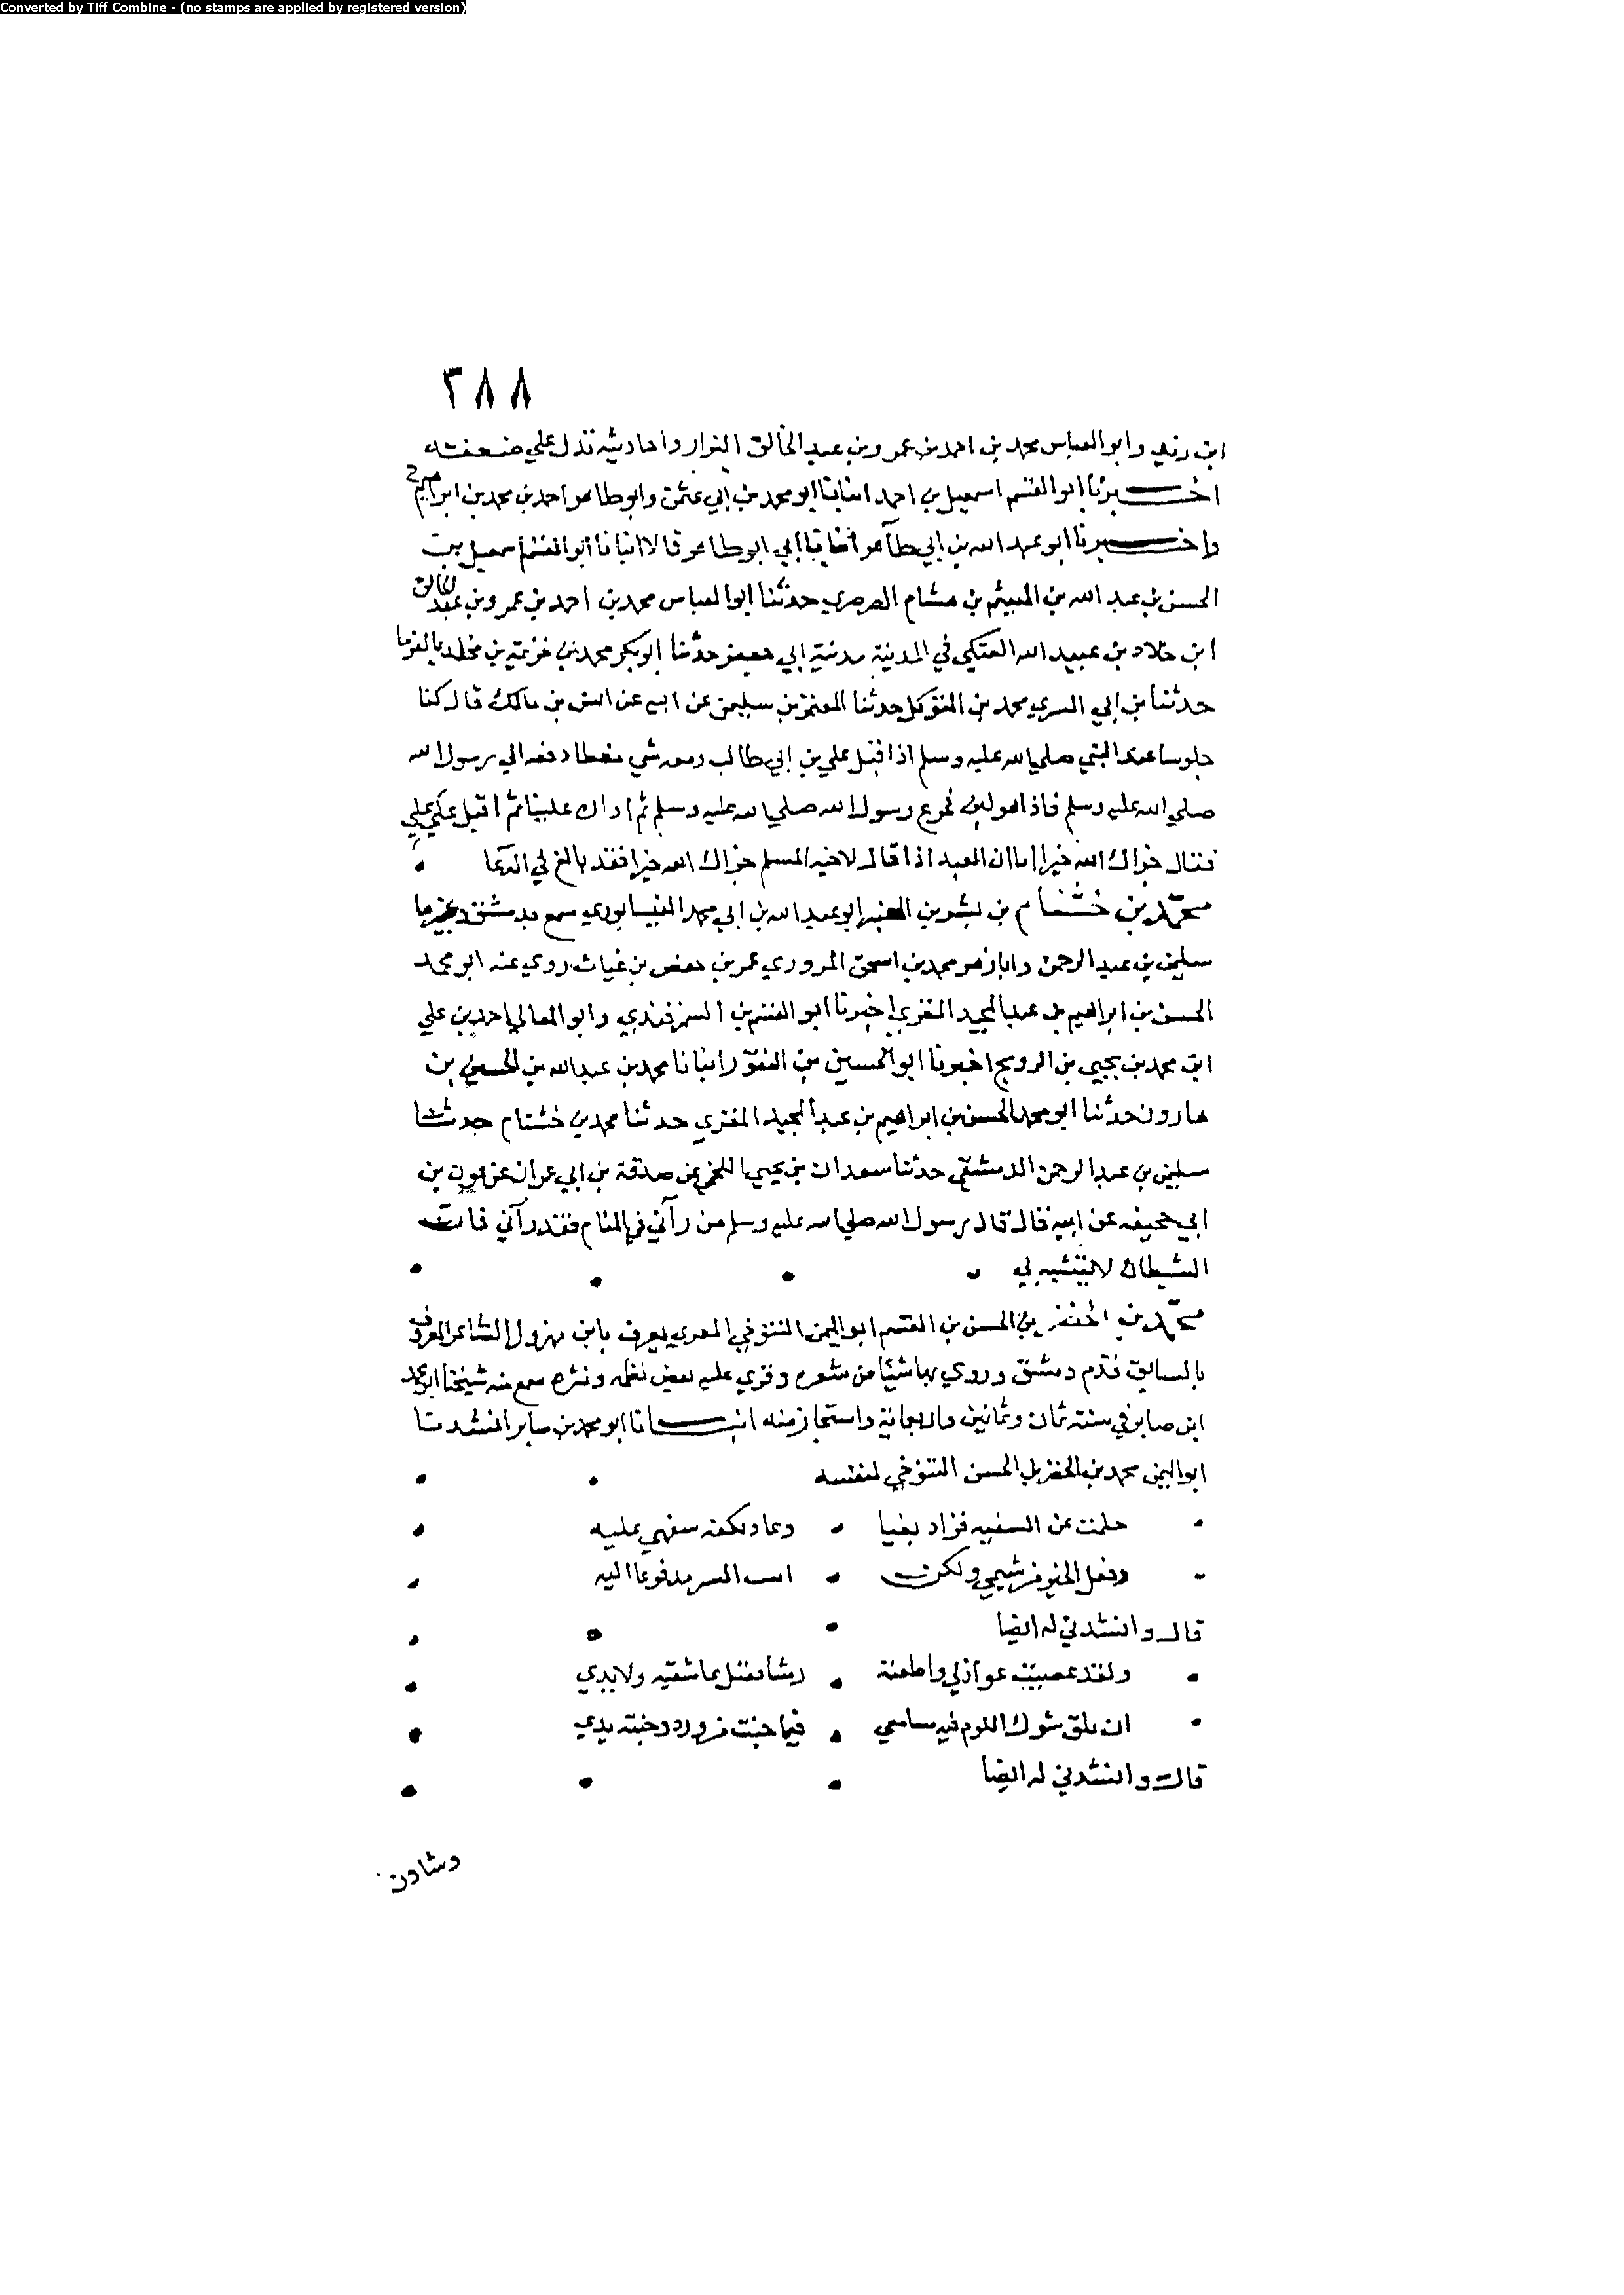 Converted by Tiff Combine - (no stamps are applied by registered version)
٢٨٨
ابن زيد وابو العباس محمد بن احمد بن عمرو بن عبد الخالق البزار واحاديثه تدل علي ضعفته
اخبرنا ابو القسم اسمعيل بن احمد انبانا ابو محمد بن ابي عثمن وابو طاهر احمد بن محمد بن ابراهيم ح
واخبرنا ابو عبد الله بن ابي طاهر انبانا ابي ابو طاهر قالا انبانا ابو القسم اسمعيل بن
الحسن بن عبد الله بن الهيثم بن هشام الصرصري حدثنا ابو العباس محمد بن احمد بن عمرو بن عبد الخالق
ابن خلاد بن عبيد الله العتكي في المدينة مدينة ابي جعفر حدثنا ابو بكر محمد بن خزيمة بن مخلد بالفرما
حدثنا بن ابي السري محمد بن المتوكل حدثنا المعتمر بن سليمن عن ابيه عن انس بن مالك قال كنا
جلوسا عند النبي صلي الله عليه وسلم اذ اقبل علي بن ابي طالب ومعه شي مغطا دفعه الي رسول الله
صلي الله عليه وسلم فاذا هو لبن فجرع رسول الله صلي الله عليه وسلم ثم ادار علينا ثم اقبل علي علي
فقال جزاك الله خيرا اما ان العبد اذا قال لاخيه المسلم جزاك الله خيرا فقد بالغ في الدعا
محمد بن خشنام بن بشر بن العنبر ابو عبد الله بن ابي محمد النيسابوري سمع بدمشق وغيرها
سليمن بن عبد الرحمن وابا زهر محمد بن اسحق المروري عمر بن حفص بن غياث روي عنه ابو محمد
الحسن بن ابراهيم بن عبد المجيد المقري اخبرنا ابو القسم بن السمرقندي وابو المعالي احمد بن علي
ابن محمد بن يحيي بن الرويج اخبرنا ابو الحسين بن النقور انبانا محمد بن عبد الله بن الحسين بن
هارون حدثنا ابو محمد الحسن بن ابراهيم بن عبد المجيد المقري حدثنا محمد بن خشنام حدثنا
سليمن بن عبد الرحمن الدمشقي حدثنا سعدان بن يحيي اللخمي عن صدقة بن ابي عمران عن عون بن
ابي جحيفه عن ابيه قال قال رسول الله صلي الله عليه وسلم من رآني في المنام فقد رآني فان
الشيطان لا يتشبه بي
محمد بن الخضر بن الحسن بن القسم ابو اليمن التنوخي المعري يعرف بابن مهزول الشاعر المعروف
بالسابق قدم دمشق وروي بها شيئا من شعره وقري عليه بعض نظمه ونثره سمع منه شيخنا ابو محمد
ابن صابر في سنة ثمان وثمانين واربعماية واستجاز منه انبانا ابو محمد بن صابر انشدنا
ابو اليمن محمد بن الخضر بن الحسن التنوخي لنفسه
حلمت عن السفيه فزاد بغيا وعاد فكفه سفهي عليه
وفعل الخير من شيمي ولكن اتيت الشر مدفوعا اليه
قال وانشدني له ايضا
ولقد عصيت عواذلي واطعته رشا يقتل عاشقيه ولا يدي
ان تلق شوك اللوم فيه مسامعي فيما جنت من ورد وجنته يدي
قال وانشدني له ايضا
وشادن